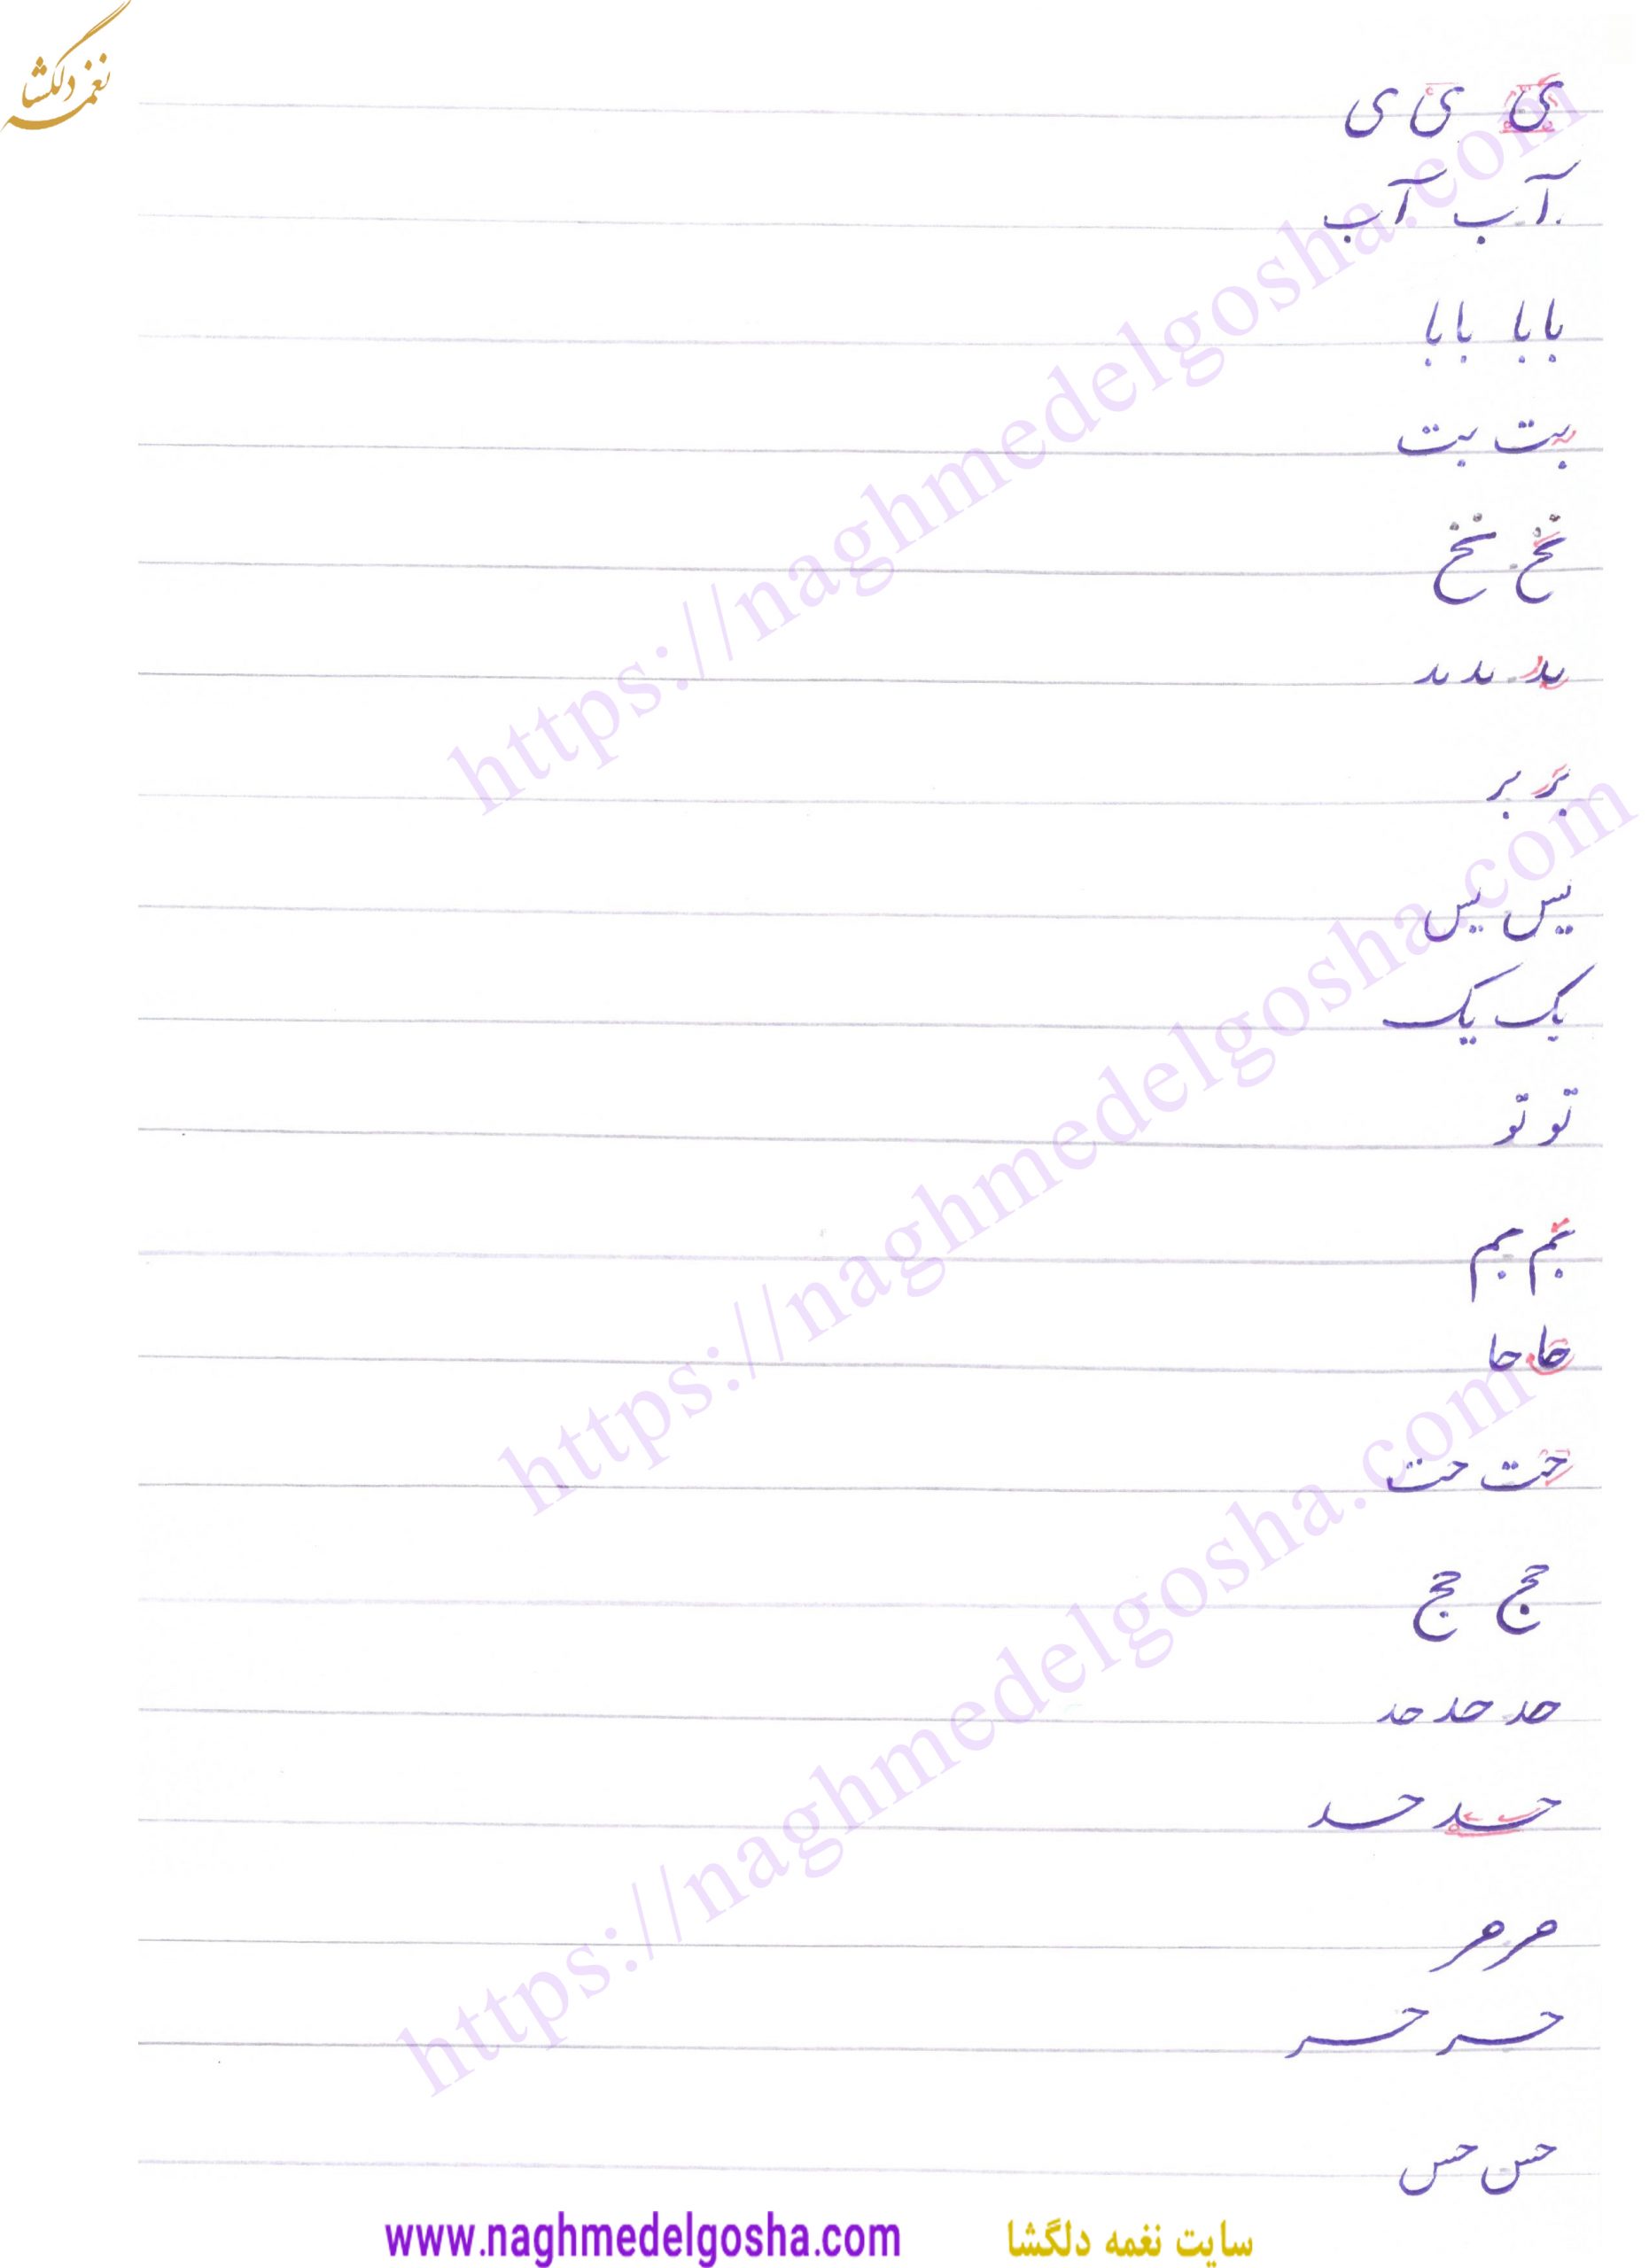 نغمه دلگشا
ی ی ی
آب آب
بابا بابا
بت بت
نخ نخ
بد بد بد
بر بر
یس یس
یک یک
تو تو
بم بم
حا حا
حت حت
حج حج
حد حد حد
حد حد
حر حر
حر حر
حس حس
https://naghmedelgosha.com
https://naghmedelgosha.com
https://naghmedelgosha.com
سایت نغمه دلگشا www.naghmedelgosha.com